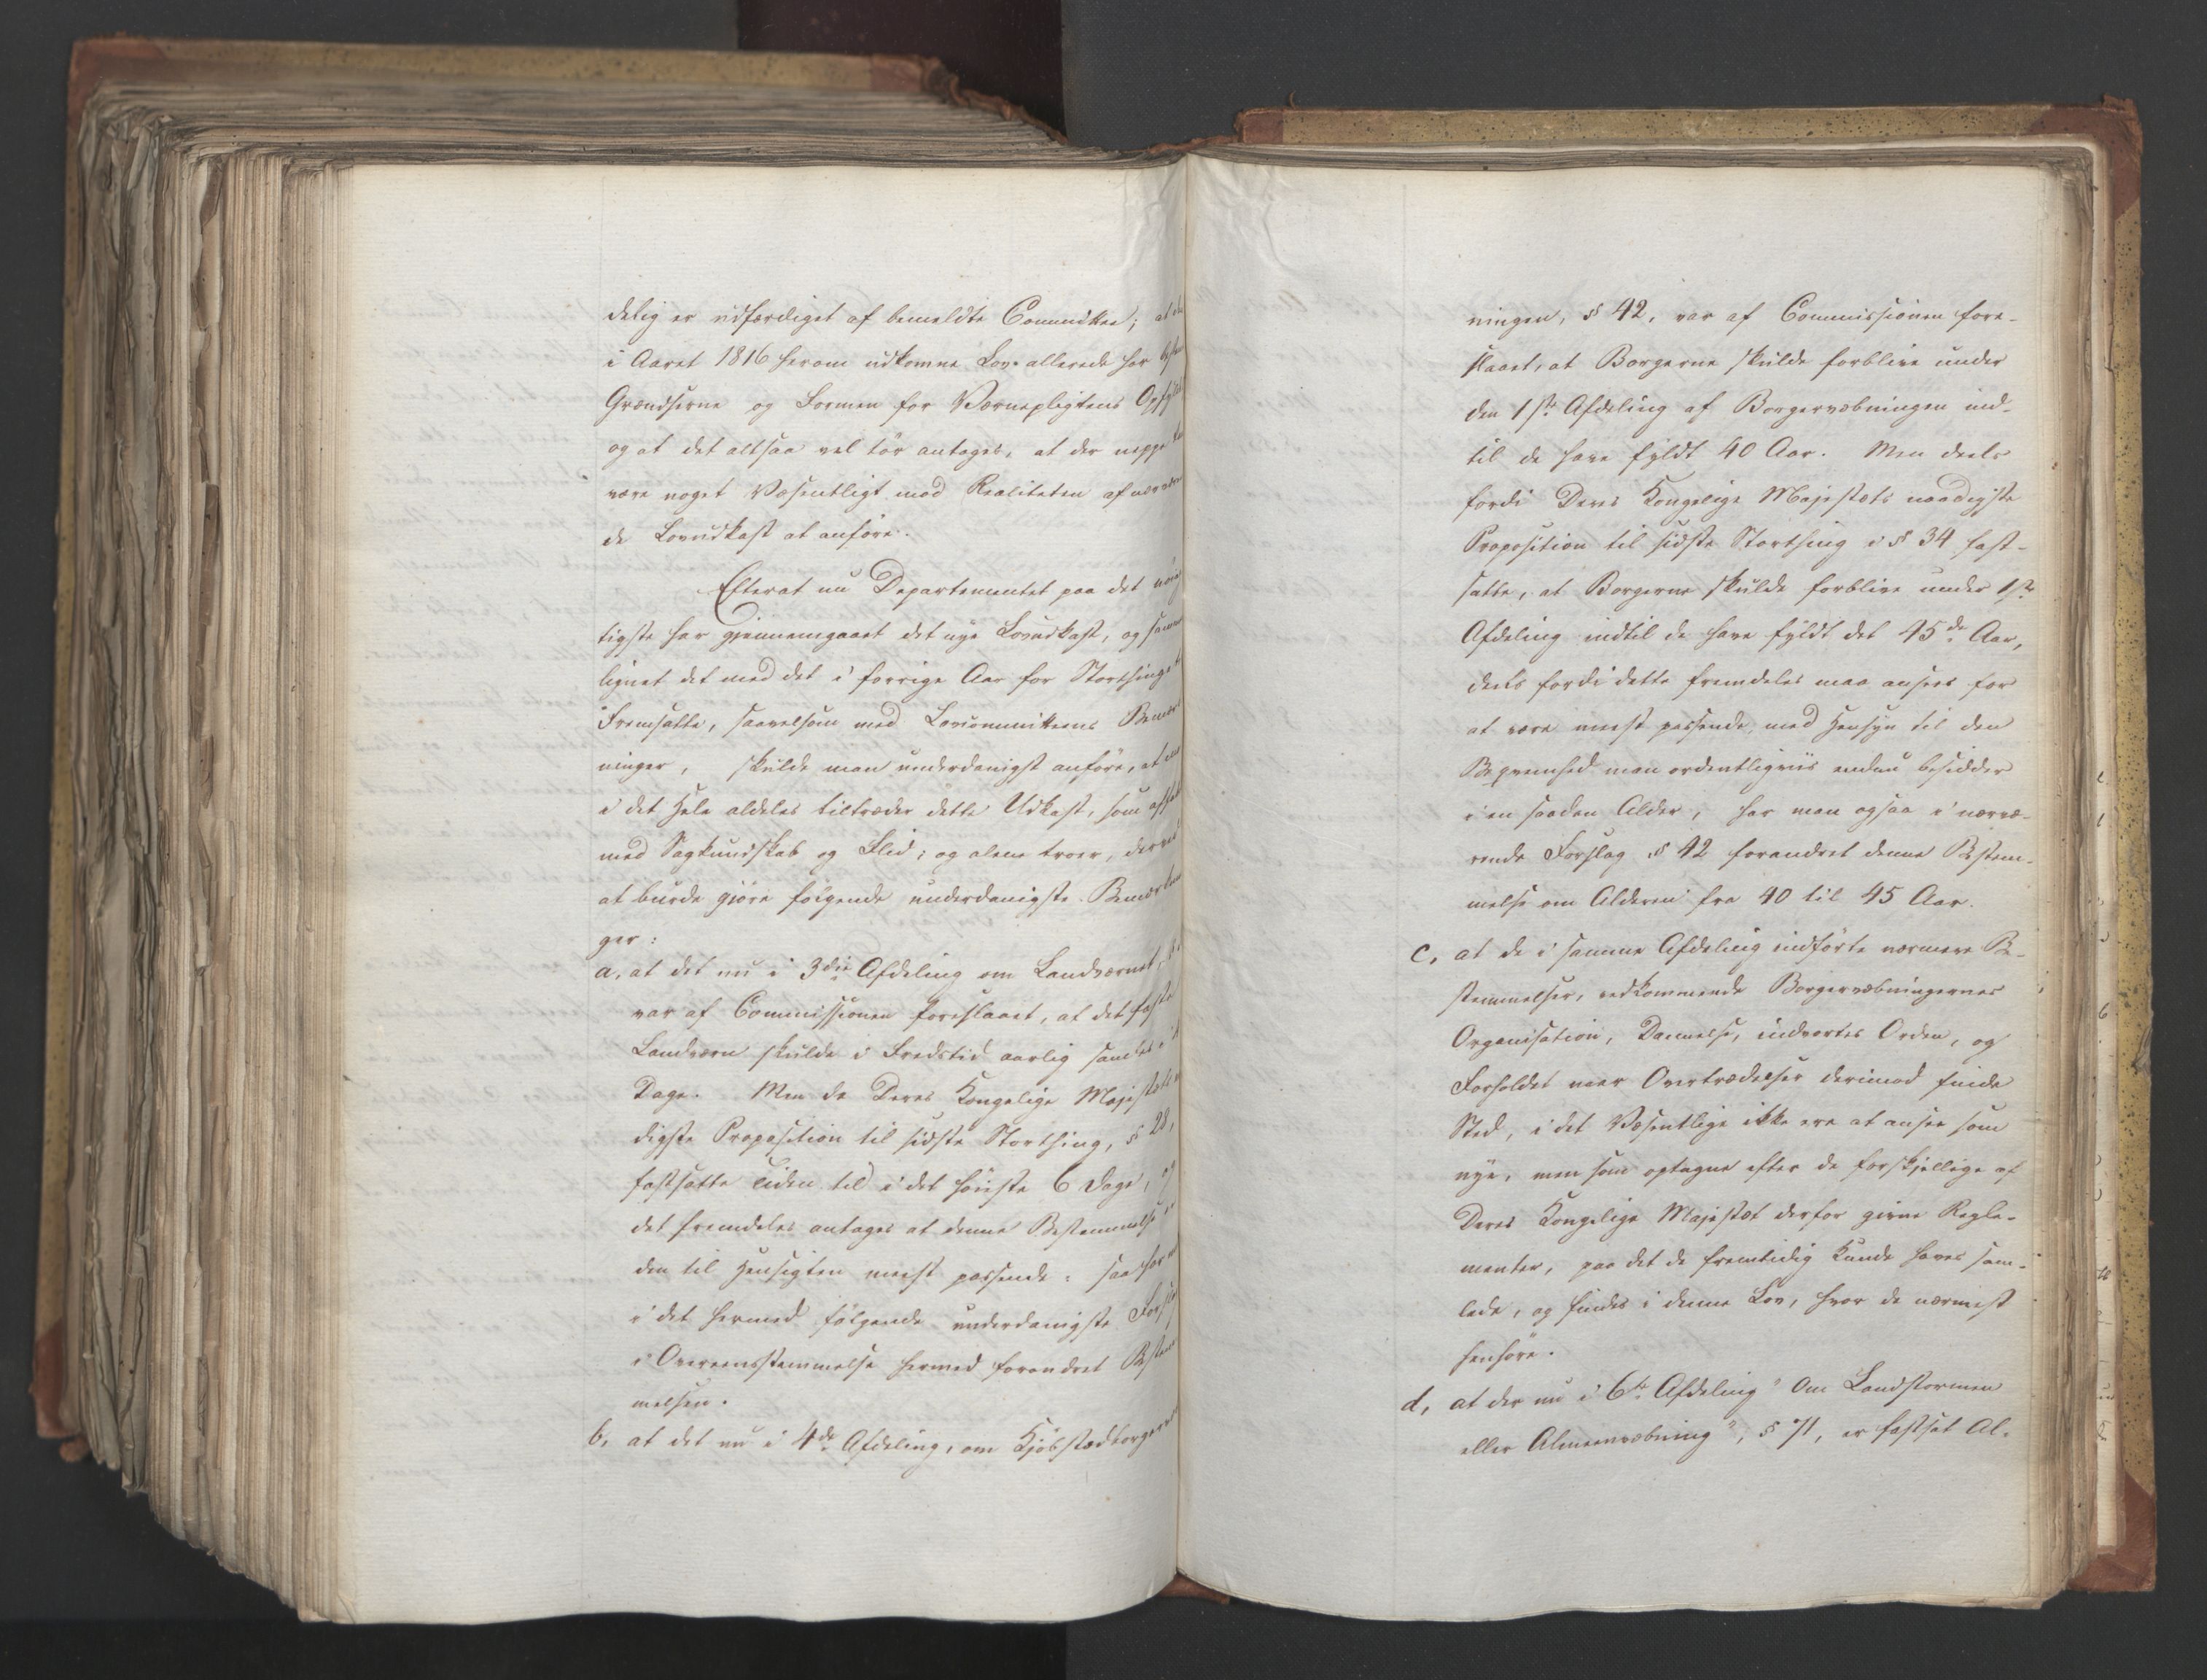 delig er udfærdiget af bemeldte Committee; at
i Aaret 1816 herom udkomne Lov allerede har
Grændserne og Formen for Værnepligtens
og at det altsaa vel tør antages, at der neppe
være noget Væsentligt mod Realiteten af
de Lovudkast at anføre.
Efterat nu Departementet paa det
tigste har gjennemgaaet det nye Lovudkast, og
lignet det med det i forrige Aar for Storthinget
Fremsatte, saavelsom med Lovcommitteens
ninger, skulde man underdanigst anføre, at
i det Hele aldeles tiltræder dette Udkast, som
med Sagkundskab og Flid; og alene troer, derved
at burde gjøre følgende underdanigste
ger:
a, at det nu i 3die Afdeling om Landværnet,
var af Commissionen foreslaaet, at det faste
Landværn skulde i Fredstid aarlig samles i
Dage. Men da Deres Kongelige
digste Proposition til sidste Storthing, § 28,
fastsatte Tiden til i det høieste 6 Dage, og
det fremdeles antages at denne Bestemmelse er
den til Hensigten meest passende; saa har
i det hermed følgende underdanigste
i Overeensstemmelse hermed forandret
melsen.
b, at det nu i 4de Afdeling, om
ningen, § 42, var af Commissionen fore-
slaaet, at Borgerne skulde forblive under
den 1ste Afdeling af Borgervæbningen ind-
til de have fyldt 40 Aar. Men deels
fordi Deres Kongelige Majestæts naadigste
Proposition til sidste Storthing i § 34 fast-
satte, at Borgerne skulde forblive under 1ste
Afdeling indtil de have fyldt det 45de Aar,
deels fordi dette fremdeles maa ansees for
at være meest passende, med Hensyn til den
Beqvemhed man ordentligviis endnu besidder
i en saadan Alder, har man ogsaa i nærvæ-
rende Forslag § 42 forandret denne Bestem-
melse om Alderen fra 40 til 45 Aar.
c, at de i samme Afdeling indførte nærmere Be-
stemmelser, vedkommende Borgervæbningernes
Organisation, Dannelse, indvortes Orden, og
Forholdet naar Overtrædelser derimod finde
Sted, i det Væsentlige ikke ere at ansee som
nye, men som optagne efter de forskjellige af
Deres Kongelige Majestæt derfor givne Regle-
menter, paa det de fremtidig kunde haves sam-
lede, og findes i denne Lov, hvor de nærmest
henhøre.
d, at der nu i 6te Afdeling "Om Landstormen
eller Almeenvæbning", § 71, er fastsat Al-